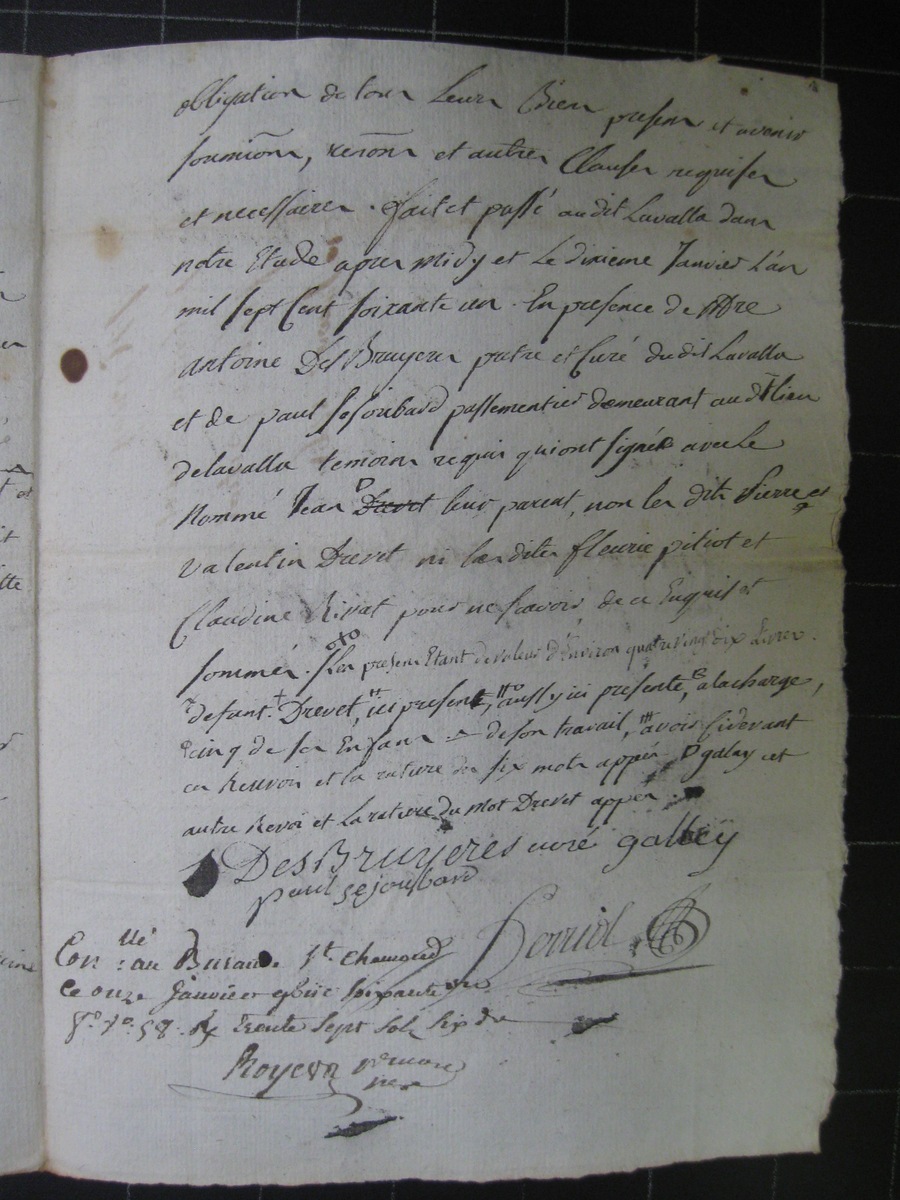 obligation de tous Leurs Biens presens et avenir
soumions, renons et autres Clauses requises
et necessaires. fait et passé audit Lavalla dans
notre Etude apres midy et Le dixieme Janvier L'an
mil sept Cent soixante un. En presence de Mre
antoine DesBruyeres pretre et Curé dudit Lavalla
et de paul Sejoubard passementier demeurant audt lieu
delavalla temoins requis qui ont signés avec Le
Nommé Jean Drevet leur parent, non les dits Pierre et
valentin Drevet ni les dites fleurie pitiot et
Claudine Rivat pour ne sçavoir de ce Enquis et
sommés. sles presens Etant de valeur d'Environ quatrevingt dix Livres.
defunt. Drevet, ici present, aussy ici presente, alacharge,
cinq de ses Enfans de son travail, avoir Cidevant
en Renvoir et la rature des six mots appés galey et
autre Renvoi et La rature du Mot Drevet appen
DesBruyeres curé galley
paul sejoubard
Con : au Bureau St chamond
Ce onze Janvier soixante un
fo vo 58. Rx Trente sept sols six ds
Royer